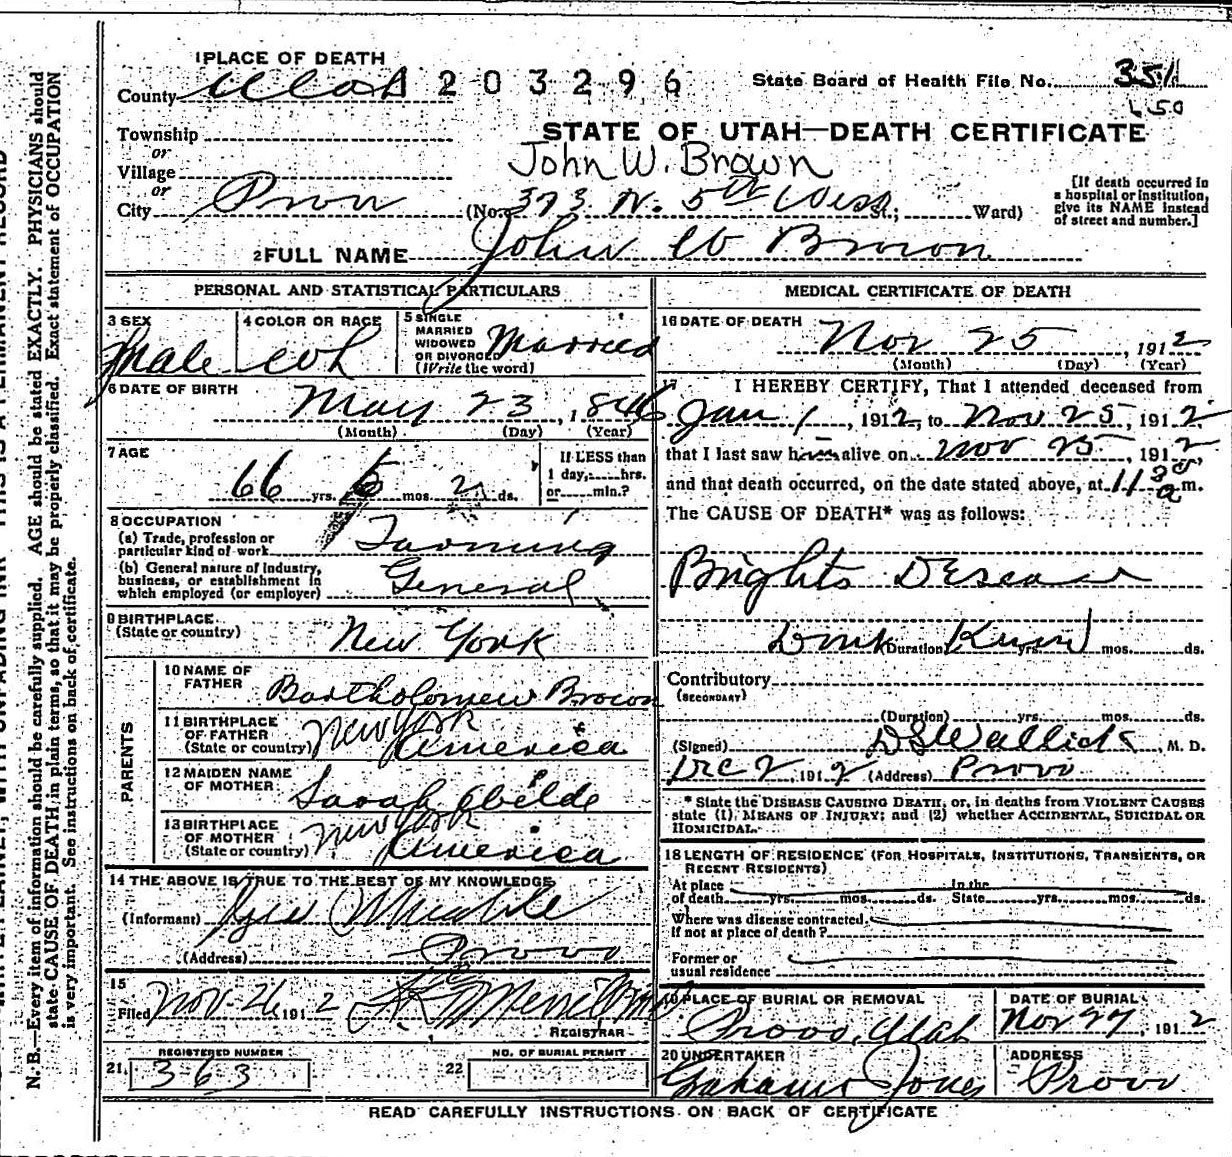 1 PLACE OF DEATH
County Utah 203296 State Board of Health File No. 351
L50
Township
or
STATE OF UTAH—DEATH CERTIFICATE
Village
John W. Brown
or
City Provo (No. 373 N. 5th West St.; Ward)
[If death occurred in
a hospital or institution,
give its NAME instead
of street and number.]
2 FULL NAME John W Brown
PERSONAL AND STATISTICAL PARTICULARS
3 SEX
male
4 COLOR OR RACE
5 SINGLE
MARRIED
WIDOWED
OR DIVORCED
(Write the word)
Married
6 DATE OF BIRTH
May 23, 1846
(Month) (Day) (Year)
7 AGE
66 yrs. 6 mos. 2 ds.
If LESS than
1 day,.....hrs.
or.....min.?
8 OCCUPATION
(a) Trade, profession or
particular kind of work
(b) General nature of industry,
business, or establishment in
which employed (or employer)
General
9 BIRTHPLACE
(State or country)
New York
PARENTS
10 NAME OF
FATHER
Bartholomew Brown
11 BIRTHPLACE
OF FATHER
(State or country)
New York
America
12 MAIDEN NAME
OF MOTHER
Sarah
13 BIRTHPLACE
OF MOTHER
(State or country)
New York
America
14 THE ABOVE IS TRUE TO THE BEST OF MY KNOWLEDGE
(Informant)
(Address) Provo
15
Filed Nov. 26 1912
REGISTRAR
REGISTERED NUMBER
21. 363
NO. OF BURIAL PERMIT
22
MEDICAL CERTIFICATE OF DEATH
16 DATE OF DEATH
Nov 25, 1912
(Month) (Day) (Year)
17 I HEREBY CERTIFY, That I attended deceased from
Jan 1, 1912, to Nov 25, 1912
that I last saw him alive on Nov 25, 1912
and that death occurred, on the date stated above, at 11 30 a m.
The CAUSE OF DEATH* was as follows:
Brights Disease
Duration yrs. mos. ds.
Contributory
(SECONDARY)
(Duration) yrs. mos. ds.
(Signed) D S Wallick, M. D.
Dec 2, 1912 (Address) Provo
* State the DISEASE CAUSING DEATH, or, in deaths from VIOLENT CAUSES
state (1) MEANS OF INJURY; and (2) whether ACCIDENTAL, SUICIDAL OR
HOMICIDAL.
18 LENGTH OF RESIDENCE (FOR HOSPITALS, INSTITUTIONS, TRANSIENTS, OR
RECENT RESIDENTS)
At place of death yrs. mos. ds. In the State yrs. mos. ds.
Where was disease contracted,
If not at place of death?
Former or
usual residence
19 PLACE OF BURIAL OR REMOVAL
Provo, Utah
DATE OF BURIAL
Nov 27, 1912
20 UNDERTAKER
Jones
ADDRESS
Provo
READ CAREFULLY INSTRUCTIONS ON BACK OF CERTIFICATE
N. B.—Every item of information should be carefully supplied. AGE should be stated EXACTLY. PHYSICIANS should
state CAUSE OF DEATH in plain terms, so that it may be properly classified. Exact statement of OCCUPATION
is very important. See instructions on back of certificate.